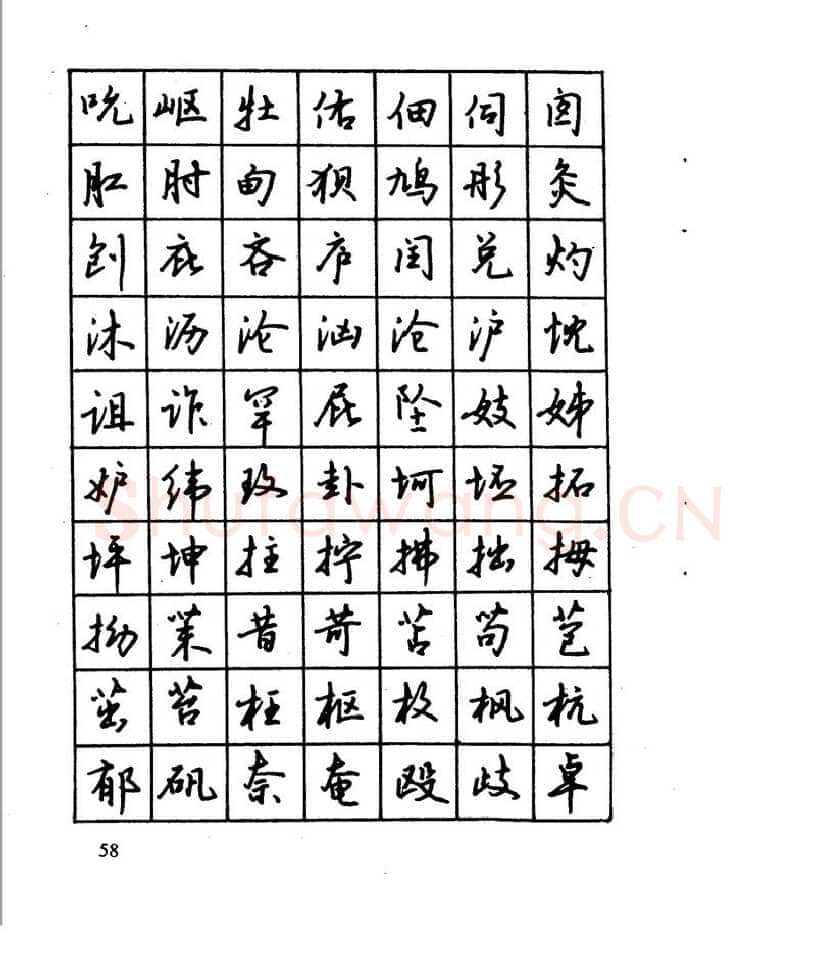 吮岖牡佑佃伺囱
肛肘甸狈鸠彤灸
刨庇吝庐闰兑灼
沐沥沦汹沧沪忱
诅诈罕屁坠妓姊
妒纬玫卦坷坯拓
shufawang.CN
坪坤拄拧拂拙拇
拗茉昔苛苫苟苞
茁苔枉枢枚枫杭
郁矾奈奄殴歧卓
58